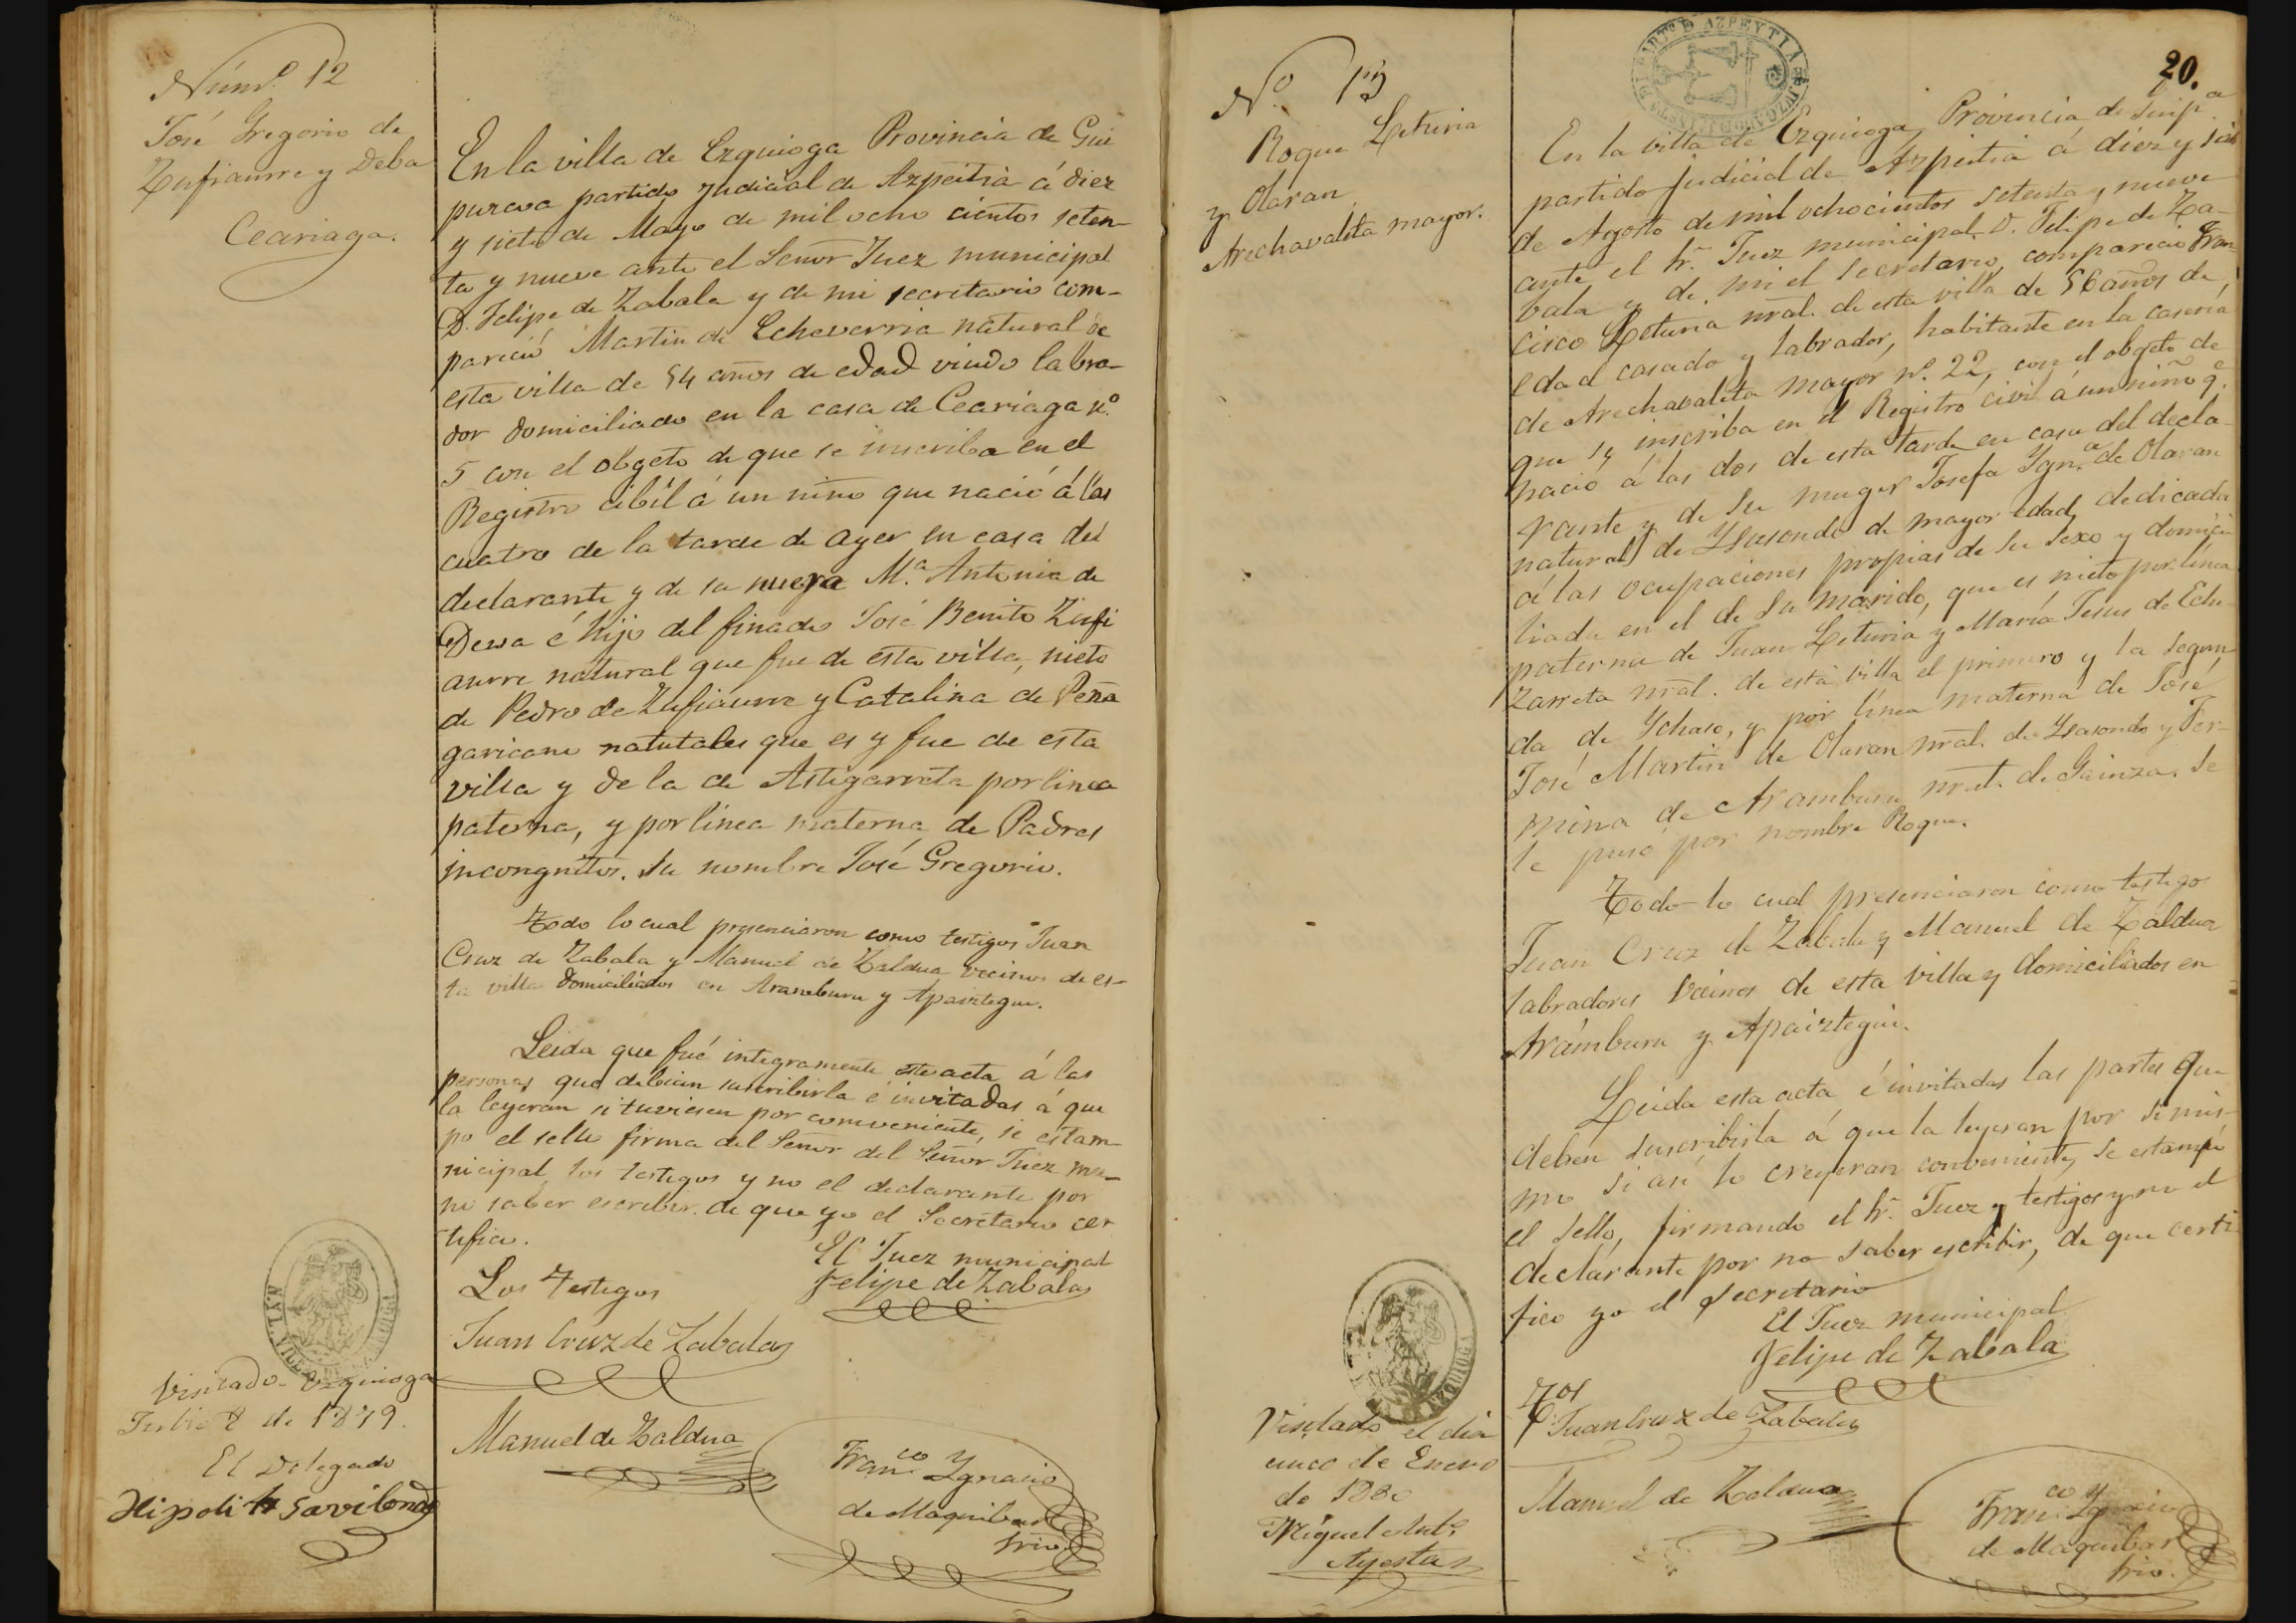 Núm.º 12
José Gregorio de
Zufiaurre y Deba
Ceariaga.
En la villa de Ezquioga Provincia de Gui
puzcoa partido judicial de Azpeitia á diez
y siete de Mayo de mil ocho cientos seten-
ta y nueve ante el Señor Juez municipal
D. Felipe de Zabala y de mi secretario com-
pareció Martin de Echeverria natural de
esta villa de 54 años de edad viudo labra-
dor domiciliado en la casa de Ceariaga n.º
5 con el obgeto de que se inscriba en el
Registro cibil á un niño que nació á las
cuatro de la tarde de ayer en casa del
declarante y de su nuera M.ª Antonia de
Dewa é hijo del finado José Benito Zufi
aurre natural que fue de esta villa, nieto
de Pedro de Zufiaurre y Catalina de Peña
garicano natutales que es y fue de esta
villa y de la de Astigarreta por linea
paterna, y por linea materna de Padres
incongnitos. Su nombre José Gregorio.
Todo lo cual presenciaron como testigos Juan
Cruz de Zabala y Manuel de Zaldua vecinos de es-
ta villa domiciliados en Aramburu y Apaiztegui.
Leida que fué integramente este acta á las
personas que debian suscribirla é invitadas á que
la leyeran si tuviesen por comveniente, se estam-
po el sello firma del Señor del Señor Juez mu-
nicipal los testigos y no el declarante por
no saber escribir. de que yo el Secretario cer
tifico.
El Juez municipal
Felipe de Zabala
Los Testigos
Juan Cruz de Zabala
Manuel de Zaldua
Fran.co Ygnacio
de Maquibar
Srio.
Visitado Ezquioga
Julio 8 de 1879.
El Delegado
Hipolito
Nº 13
Roque Leturia
y Olaran
Arechavaleta mayor.
20.
En la villa de Ezquioga, Provincia de Guip.a
partido judicial de Azpeitia á diez y seis
de Agosto de mil ochocientos setenta y nueve
ante el Sr. Juez municipal D. Felipe de Za-
bala y de mi el secretario, compareció Fran-
cisco Leturia nral. de esta villa de 56 años de
edad casado y labrador, habitante en la caseria
de Arechavaleta mayor nº. 22, con el obgeto de
que se inscriba en el Registro civil á un niño q.e
nació á las dos de esta tarde en casa del decla-
rante y de su muger Josefa Ygn.a de Olaran
natural de Ysasondo de mayor edad, dedicada
á las ocupaciones propias de su sexo y domici
liada en el de su marido, que es nieto por línea
paterna de Juan Leturia y María Jesus de Eche-
zarreta nral. de esta villa el primero y la segun
da de Ychaso, y por línea materna de José
José Martin de Olaran nral. de Ysasondo y Fer-
mina de Aramburu nral. de Gainza. Se
le puso por nombre Roque.
Todo lo cual presenciaron como testigos
Juan Cruz de Zabala y Manuel de Zaldua
labradores Vecinos de esta villa y domiciliados en
Arámburu y Apaiztegui.
Leida esta acta é invitadas las partes que
deben suscribirla á que la leyeran por si mis-
mo si asi lo creyeran conveniente, se estampó
el sello, firmando el Sr. Juez y testigos y no el
declarante por no saber escribir, de que certi
fico yo el secretario
El Juez municipal
Felipe de Zabala
T.gos
Juan Cruz de Zabala
Manuel de Zaldua
Fran.co Ygnacio
de Maquibar
Srio.
Visitado el dia
cinco de Enero
de 1880
Miguel Ant.º
Ayestas